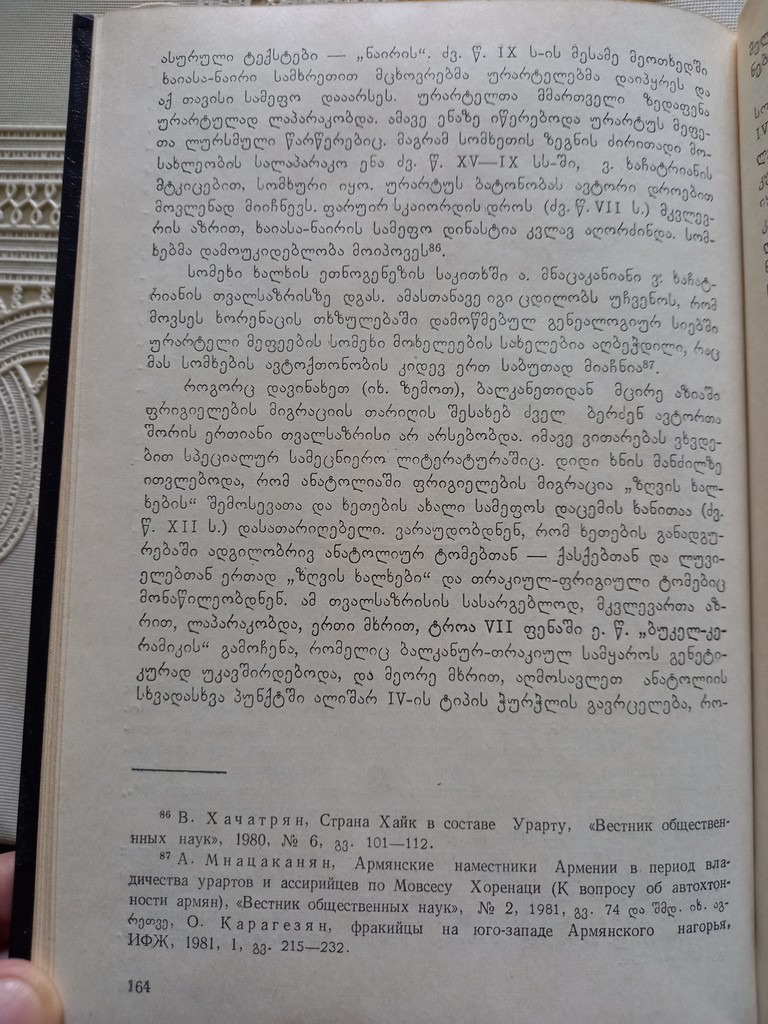 ასურული ტექსტები — „ნაირის“. ძვ. წ. IX ს-ის მესამე მეოთხედში
ხაიასა-ნაირი სამხრეთით მცხოვრებმა ურარტელებმა დაიპყრეს და
აქ თავისი სამეფო დააარსეს. ურარტელთა მმართველი ზედაფენა
ურარტულად ლაპარაკობდა. ამავე ენაზე იწერებოდა ურარტუს მეფე-
თა ლურსმული წარწერებიც. მაგრამ სომხეთის ზეგნის ძირითადი მო-
სახლეობის სალაპარაკო ენა ძვ. წ. XV—IX სს-ში, ვ. ხაჩატრიანის
მტკიცებით, სომხური იყო. ურარტუს ბატონობას ავტორი დროებით
მოვლენად მიიჩნევს. ფარუირ სკაიორდის დროს (ძვ. წ. VII ს.) მკვლევ-
რის აზრით, ხაიასა-ნაირის სამეფო დინასტია კვლავ აღორძინდა. სომ-
ხებმა დამოუკიდებლობა მოიპოვეს⁸⁶.
სომეხი ხალხის ეთნოგენეზის საკითხში ა. მნაცაკანიანი ვ. ხაჩატ-
რიანის თვალსაზრისზე დგას. ამასთანავე იგი ცდილობს უჩვენოს, რომ
მოვსეს ხორენაცის თხზულებაში დამოწმებულ გენეალოგიურ სიებში
ურარტელი მეფეების სომეხი მოხელეების სახელებია აღბეჭდილი, რაც
მას სომხების ავტოქთონობის კიდევ ერთ საბუთად მიაჩნია⁸⁷.
როგორც დავინახეთ (იხ. ზემოთ), ბალკანეთიდან მცირე აზიაში
ფრიგიელების მიგრაციის თარიღის შესახებ ძველ ბერძენ ავტორთა
შორის ერთიანი თვალსაზრისი არ არსებობდა. იმავე ვითარებას ვხვდე-
ბით სპეციალურ სამეცნიერო ლიტერატურაშიც. დიდი ხნის მანძილზე
ითვლებოდა, რომ ანატოლიაში ფრიგიელების მიგრაცია „ზღვის ხალ-
ხების“ შემოსევათა და ხეთების ახალი სამეფოს დაცემის ხანითაა (ძვ.
წ. XII ს.) დასათარიღებელი. ვარაუდობდნენ, რომ ხეთების განადგუ-
რებაში ადგილობრივ ანატოლიურ ტომებთან — ქასქებთან და ლუვი-
ელებთან ერთად „ზღვის ხალხები“ და თრაკიულ-ფრიგიული ტომებიც
მონაწილეობდნენ. ამ თვალსაზრისის სასარგებლოდ, მკვლევართა აზ-
რით, ლაპარაკობდა, ერთი მხრით, ტროა VII ფენაში ე. წ. „ბუკელ-კე-
რამიკის“ გამოჩენა, რომელიც ბალკანურ-თრაკიულ სამყაროს გენეტი-
კურად უკავშირდებოდა, და მეორე მხრით, აღმოსავლეთ ანატოლიის
სხვადასხვა პუნქტში ალიშარ IV-ის ტიპის ჭურჭლის გავრცელება, რო-
⁸⁶ В. Хачатрян, Страна Хайк в составе Урарту, «Вестник обществен-
нных наук», 1980, № 6, გვ. 101—112.
⁸⁷ А. Мнацаканян, Армянские наместники Армении в период вла-
дичества урартов и ассирийцев по Мовсесу Хоренаци (К вопросу об автохтон-
ности армян), «Вестник общественных наук», № 2, 1981, გვ. 74 და შმდ. იხ. აგ-
რეთვე, О. Карагезян, фракийцы на юго-западе Армянского нагорья,
ИФЖ, 1981, 1, გვ. 215—232.
164